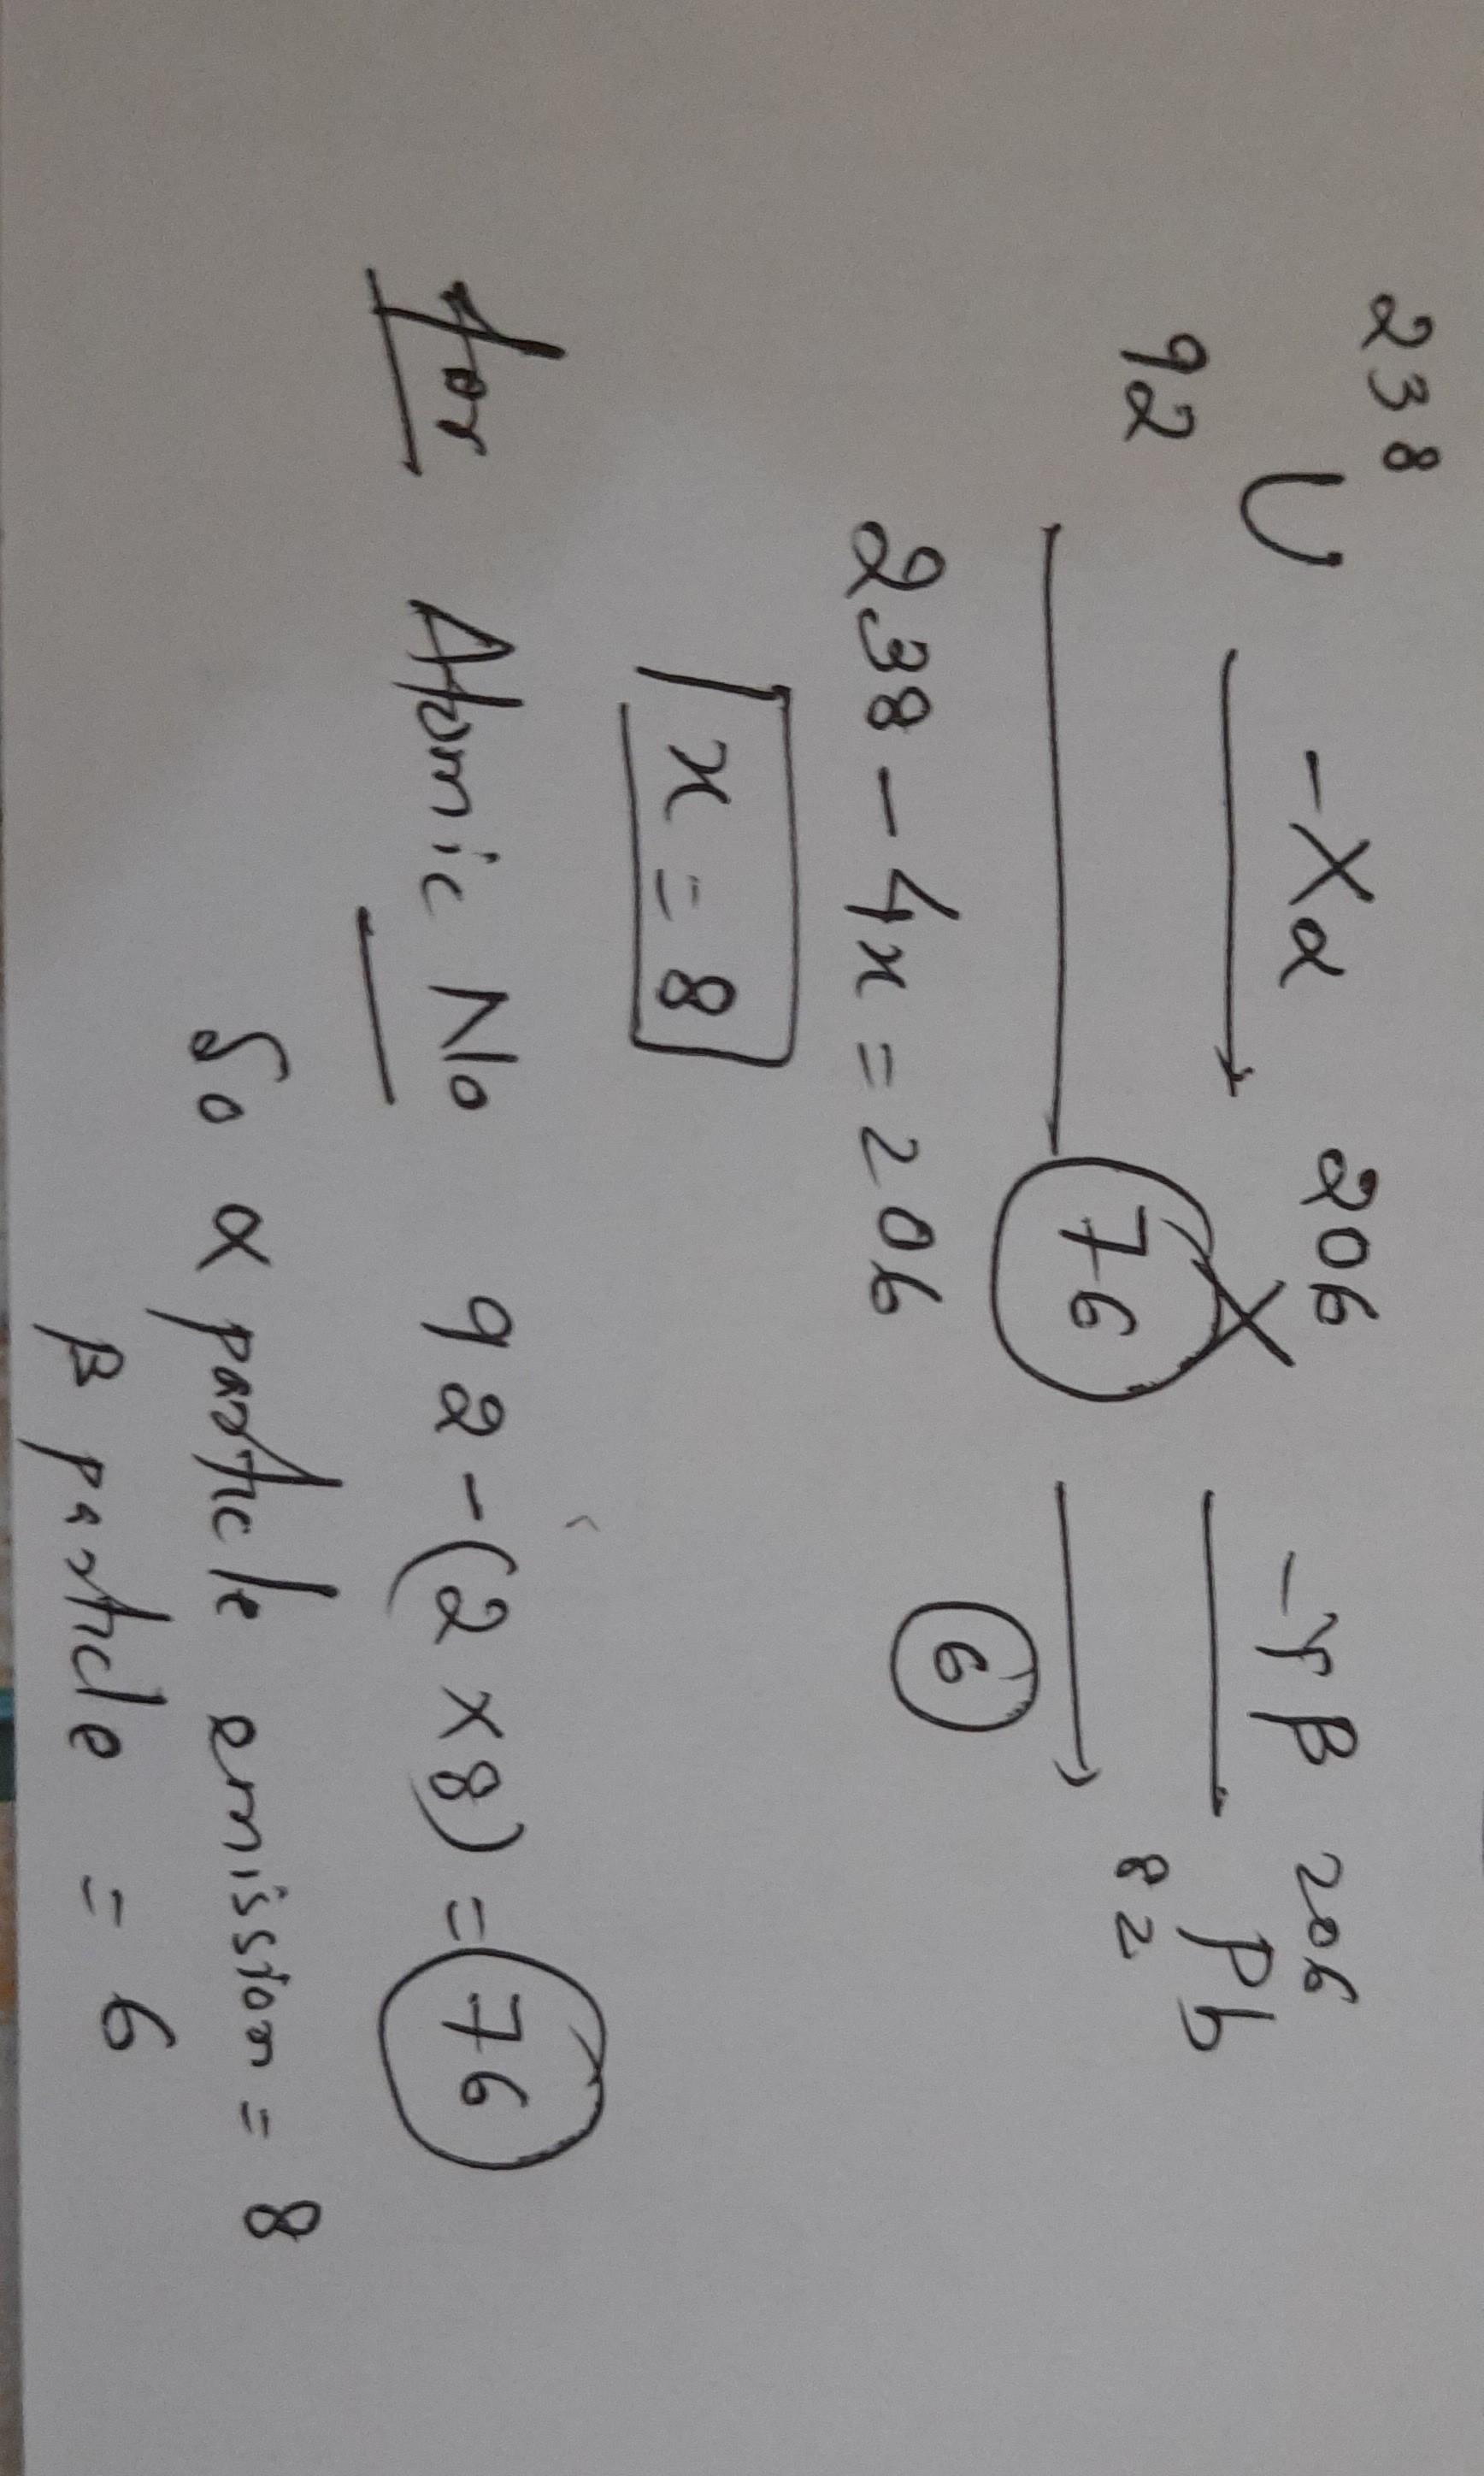 238 U 92 -Xα 206 X 76 -Yβ 206 Pb 82
6
238 - 4x = 206
x = 8
for Atomic No 92 - (2 x 8) = 76
So α particle emission = 8
β particle = 6